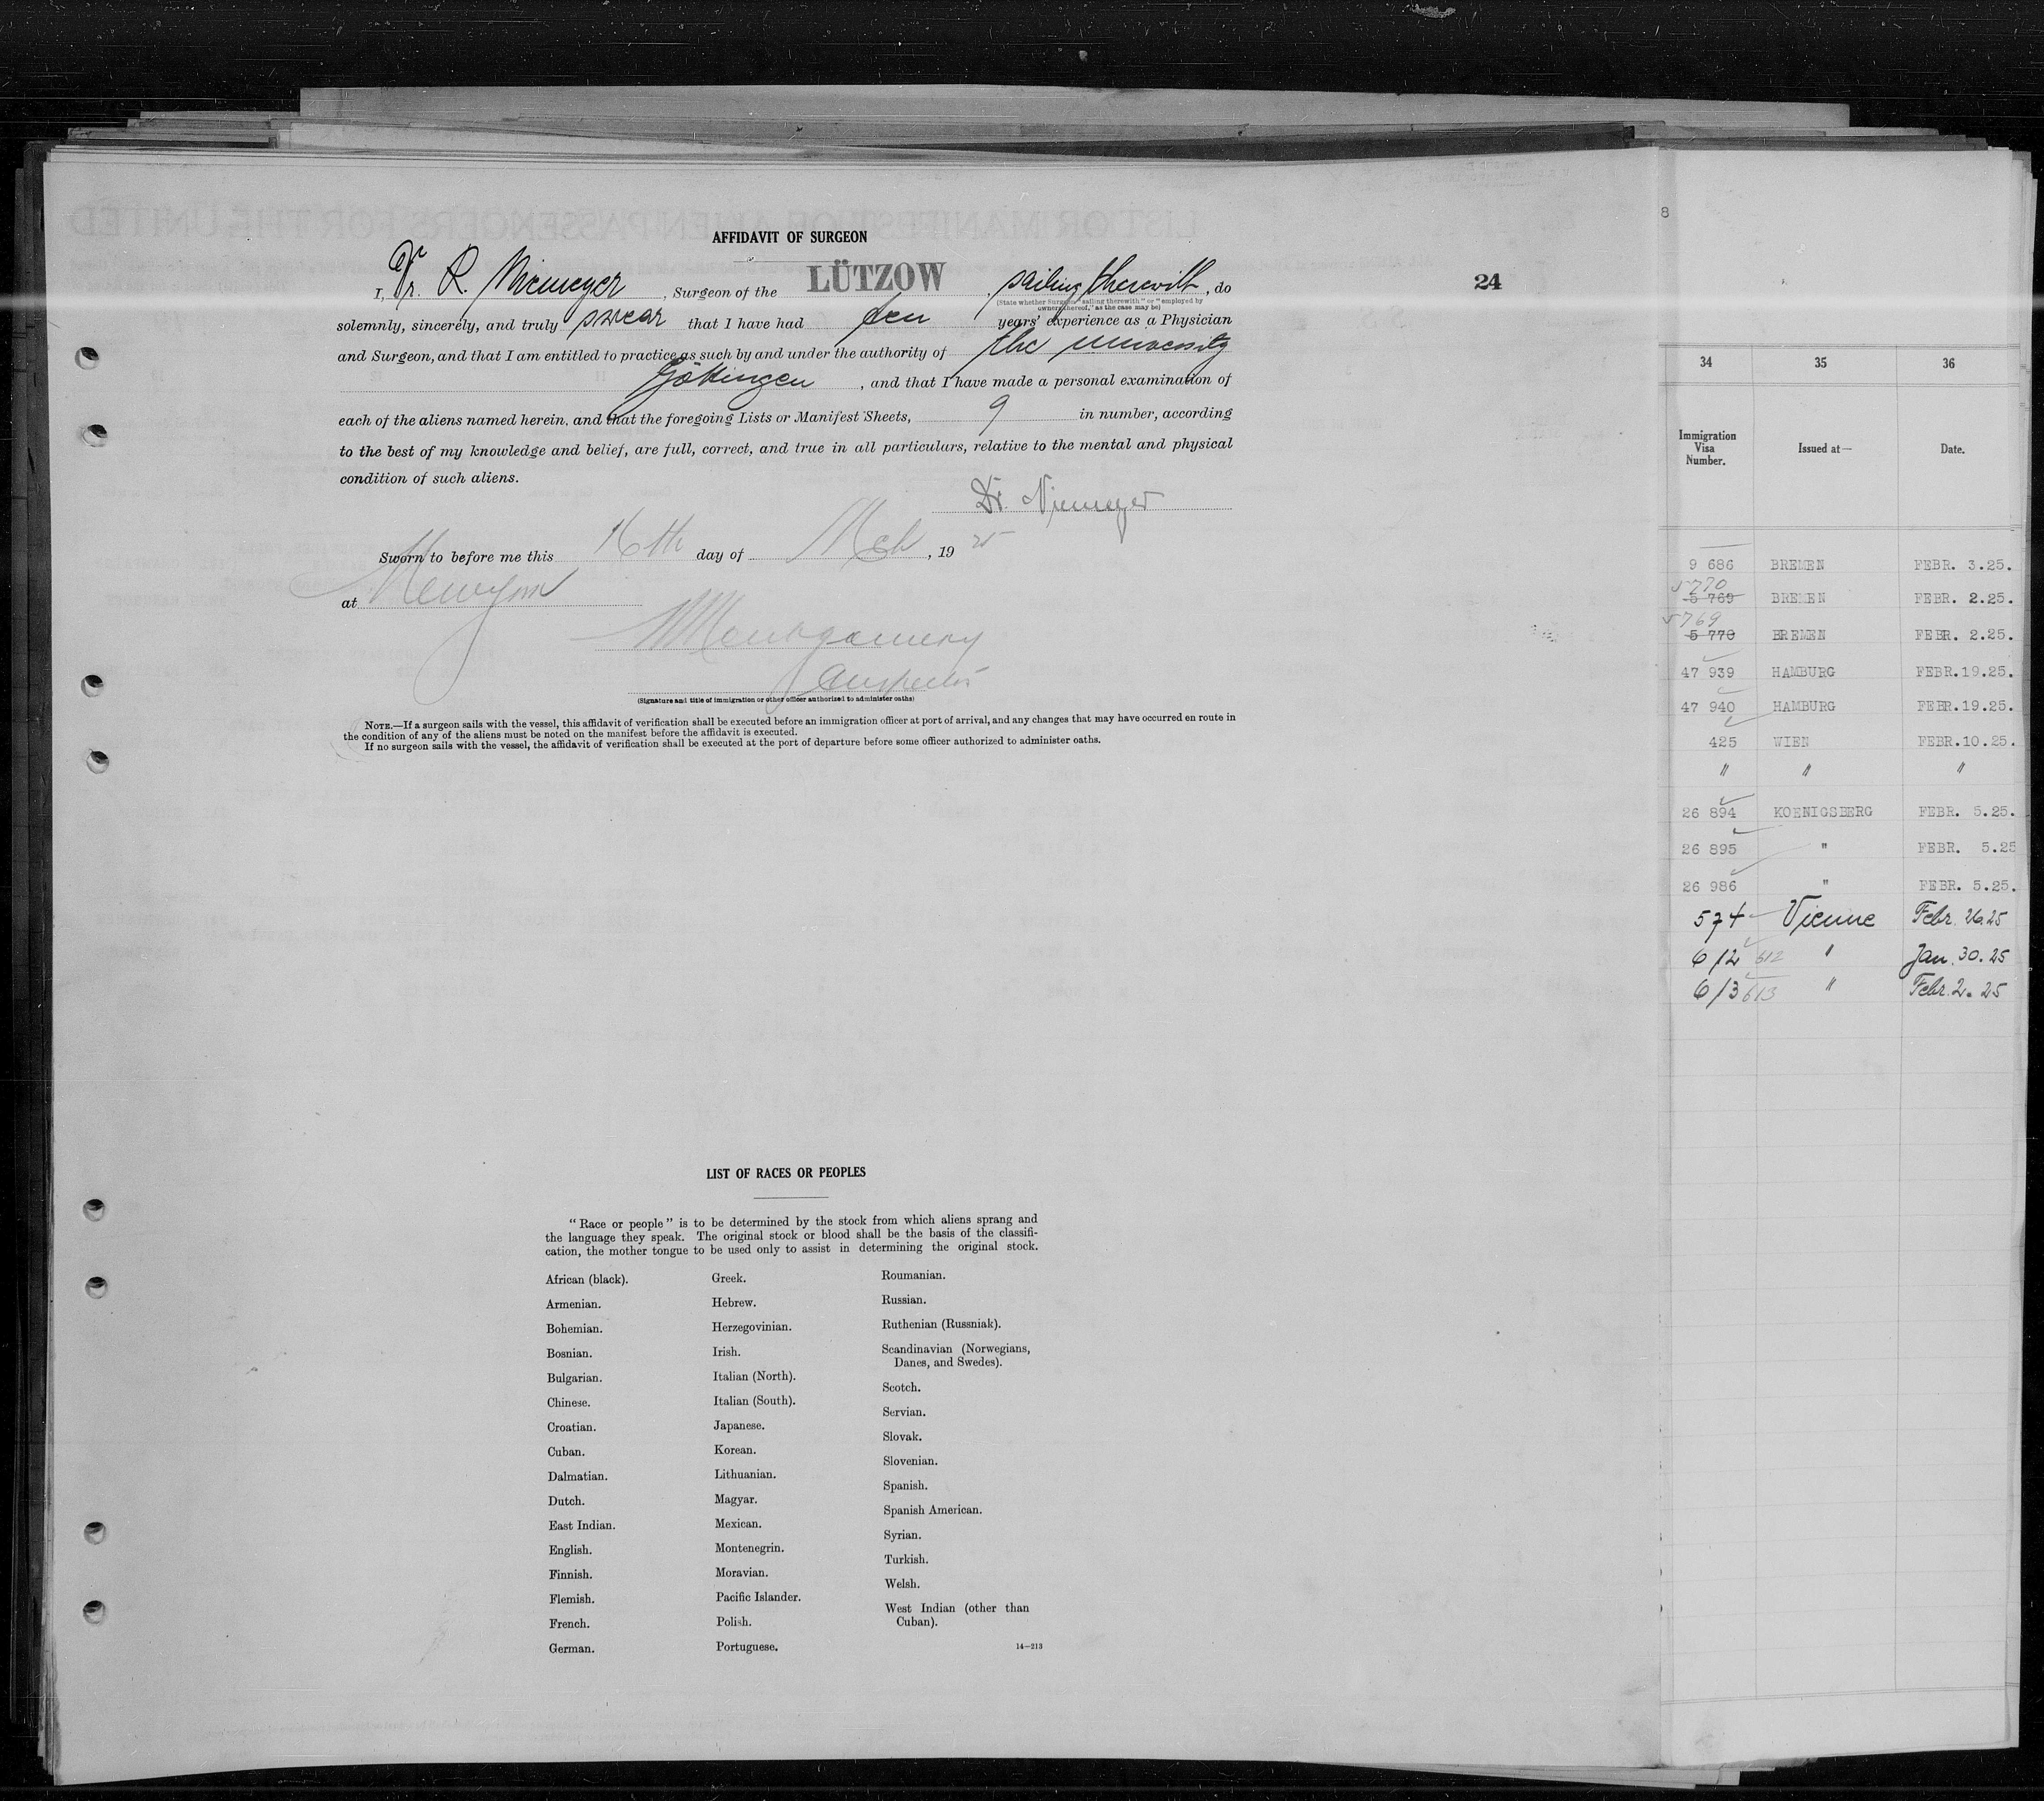 AFFIDAVIT OF SURGEON
I, Dr. R. Niemeyer, Surgeon of the LÜTZOW, sailing therewith, do
(State whether Surgeon "sailing therewith" or "employed by owners thereof," as the case may be)
solemnly, sincerely, and truly swear that I have had ten years' experience as a Physician
and Surgeon, and that I am entitled to practice as such by and under the authority of the university
Göttingen, and that I have made a personal examination of
each of the aliens named herein, and that the foregoing Lists or Manifest Sheets, 9 in number, according
to the best of my knowledge and belief, are full, correct, and true in all particulars, relative to the mental and physical
condition of such aliens.
Dr. Niemeyer
Sworn to before me this 16th day of Mch, 19 25
at
Montgomery
Inspector
(Signature and title of immigration or other officer authorized to administer oaths)
NOTE.—If a surgeon sails with the vessel, this affidavit of verification shall be executed before an immigration officer at port of arrival, and any changes that may have occurred en route in
the condition of any of the aliens must be noted on the manifest before the affidavit is executed.
If no surgeon sails with the vessel, the affidavit of verification shall be executed at the port of departure before some officer authorized to administer oaths.
LIST OF RACES OR PEOPLES
"Race or people" is to be determined by the stock from which aliens sprang and
the language they speak. The original stock or blood shall be the basis of the classifi-
cation, the mother tongue to be used only to assist in determining the original stock.
African (black).
Armenian.
Bohemian.
Bosnian.
Bulgarian.
Chinese.
Croatian.
Cuban.
Dalmatian.
Dutch.
East Indian.
English.
Finnish.
Flemish.
French.
German.
Greek.
Hebrew.
Herzegovinian.
Irish.
Italian (North).
Italian (South).
Japanese.
Korean.
Lithuanian.
Magyar.
Mexican.
Montenegrin.
Moravian.
Pacific Islander.
Polish.
Portuguese.
Roumanian.
Russian.
Ruthenian (Russniak).
Scandinavian (Norwegians,
Danes, and Swedes).
Scotch.
Servian.
Slovak.
Slovenian.
Spanish.
Spanish American.
Syrian.
Turkish.
Welsh.
West Indian (other than
Cuban).
14—213
24
8
34 35 36
Immigration
Visa
Number.
Issued at—
Date.
9 686 BREMEN FEBR. 3.25.
5770
5 769 BREMEN FEBR. 2.25.
5769
5 770 BREMEN FEBR. 2.25.
47 939 HAMBURG FEBR.19.25.
47 940 HAMBURG FEBR.19.25.
425 WIEN FEBR.10.25.
" " "
26 894 KOENIGSBERG FEBR. 5.25.
26 895 " FEBR. 5.25
26 986 " FEBR. 5.25.
574 Vienne Febr. 26.25
612 612 " Jan. 30.25
613 613 " Febr. 2. 25